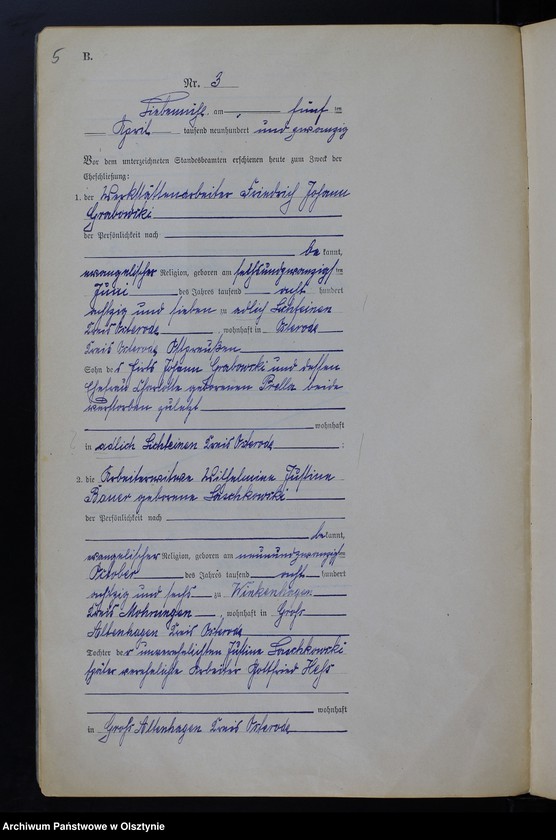 5 B.
Nr. 3
Liebemühl, am fünf ten
April tausend neunhundert und zwanzig
Vor dem unterzeichneten Standesbeamten erschienen heute zum Zweck der
Eheschließung:
1. der Werkstättenarbeiter Friedrich Johann
Grabowski
der Persönlichkeit nach
be kannt,
evangelischer Religion, geboren am sechsundzwanzigsten
Juni des Jahres tausend acht hundert
achtzig und sieben zu adlich Lichteinen
Kreis Osterode, wohnhaft in Osterode
Kreis Osterode Ostpreußen
Sohn des Hirts Johann Grabowski und dessen
Ehefrau Charlotte geborenen Prella beide
verstorben zuletzt
wohnhaft
in adlich Lichteinen Kreis Osterode ;
2. die Arbeiterwitwe Wilhelmine Justine
Bauer geborene Laschkowski
der Persönlichkeit nach
be kannt,
evangelischer Religion, geboren am neunundzwanzigsten
October des Jahres tausend acht hundert
achtzig und sechs zu Winkenhagen
Kreis Mohrungen, wohnhaft in Groß
Altenhagen Kreis Osterode
Tochter der unverehelichten Justine Laschkowski
später verehelichte Arbeiter Gottfried Heß
wohnhaft
in Groß Altenhagen Kreis Osterode
Archiwum Państwowe w Olsztynie